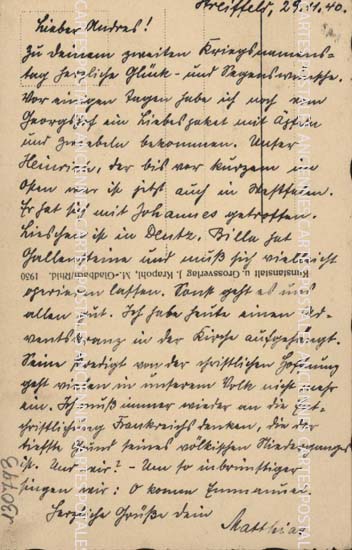 Streiffeld, 29.11.40.
Lieber Andres!
Zu deinem zweiten Kriegsnamens-
tag herzliche Glück- und Segenswünsche.
Vor einigen Tagen habe ich noch vom
Georgshof ein Liebespaket mit Äpfeln
und Zwiebeln bekommen. Unser
Heinrich, der bis vor kurzem im
Osten war ist jetzt auch in Westfalen.
Er hat sich mit Johannes getroffen.
Lieschen ist in Deutz. Billa hat
Gallensteine und muß sich vielleicht
Kunstanstalt u. Grossverlag J. Krapohl, M.-Gladbach/Rhld. 1930
operieren lassen. Sonst geht es uns
allen gut. Ich habe heute einen Ad-
ventskranz in der Kirche aufgehängt.
Seine Predigt von der christlichen Hoffnung
geht vielen in unserem Volk nicht mehr
ein. Ich muß immer wieder an die Ent-
christlichung Frankreichs denken, die der
tiefste Grund seines völkischen Niederganges
ist. Und wir? - Um so inbrünstiger
singen wir: O komm Emmanuel.
Herzliche Grüße dein
Matthias
130793
CARTESPOSTALES